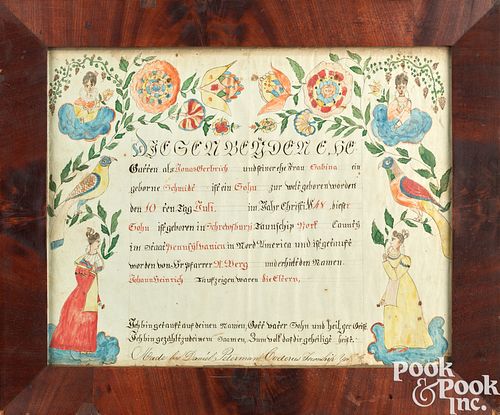 DIESEN BEYDEN EHE
Gatten als Jonas Gerbrich und seiner ehe Frau Sabina ein
geborne Schmidt ist ein Sohn zur welt geboren worden
den 10 ten Tag Juli im Jahr Christi 18 dieser
Sohn ist geboren in Schrewsbury Taunschip York Caunty
im Staat Pennsylvanien in Nord America und ist getauft
worden von Hr pfarrer R. Berg und erhielt den Namen
Johann Heinrich Taufzeigen waren die Eltern,
Ich bin getauft auf deinen Namen, Gott vater Sohn und heilger Geist
Ich bin gezählt zu deinem Saamen, Zum volk das dir geheiligt heist.
Made by Daniel Peterman
POOK
& POOK
Inc.